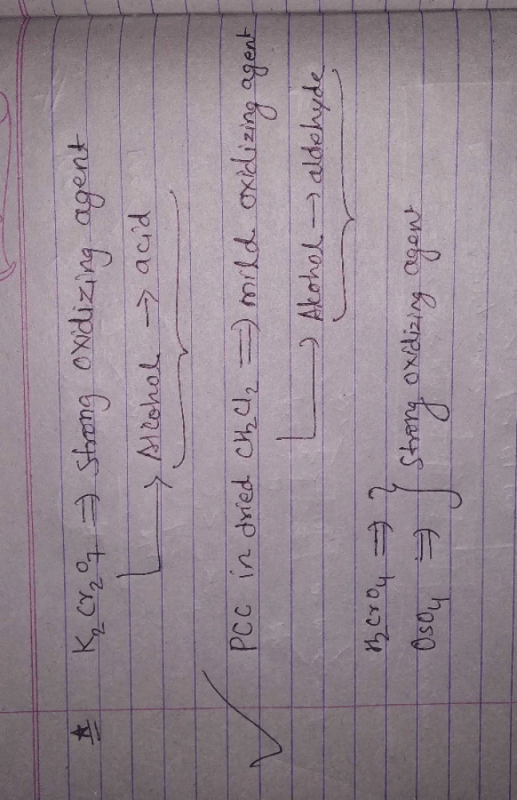 ★ K₂Cr₂O₇ ⇒ Strong oxidizing agent
↳ Alcohol → acid
PCC in dried CH₂Cl₂ ⇒ mild oxidizing agent
↳ Alcohol → aldehyde
H₂CrO₄ ⇒ }
OsO₄ ⇒ } Strong oxidizing agent